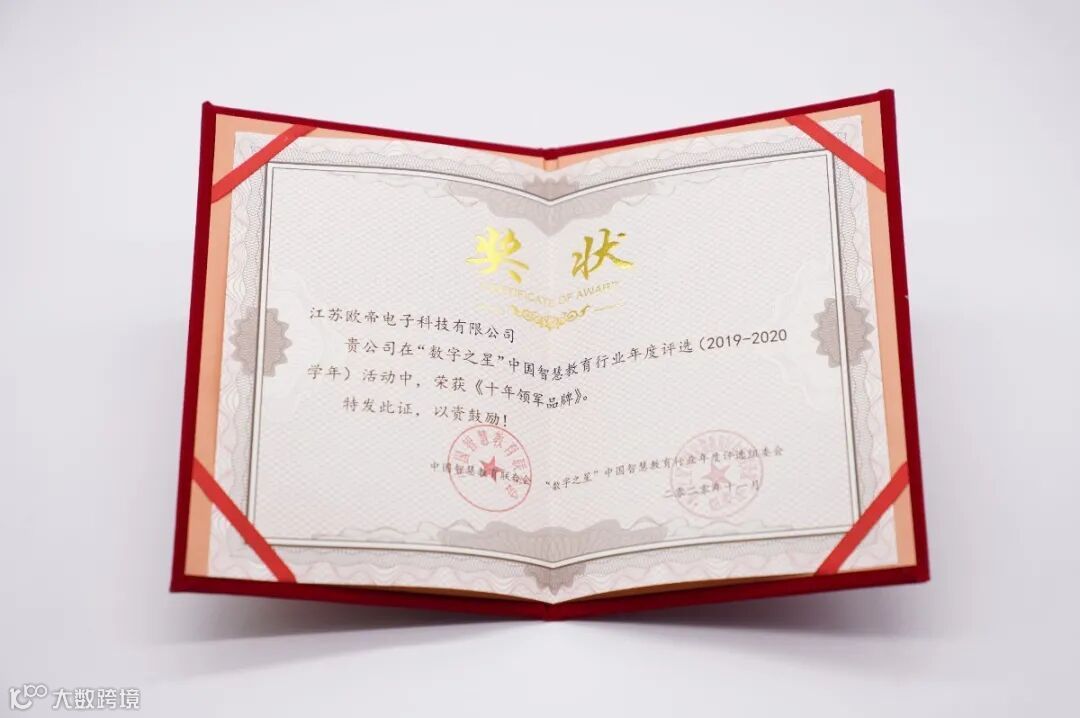 奖 状
CERTIFICATE OF AWARD
江苏欧帝电子科技有限公司
贵公司在“数字之星”中国智慧教育行业年度评选（2019-2020
学年）活动中，荣获《十年领军品牌》。
特发此证，以资鼓励！
中国智慧教育联合会 “数字之星”中国智慧教育行业年度评选组委会
二零二零年十一月
大数跨境